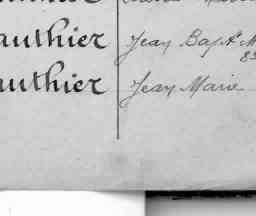 authier Jean Bapt M
83
authier Jean Marie